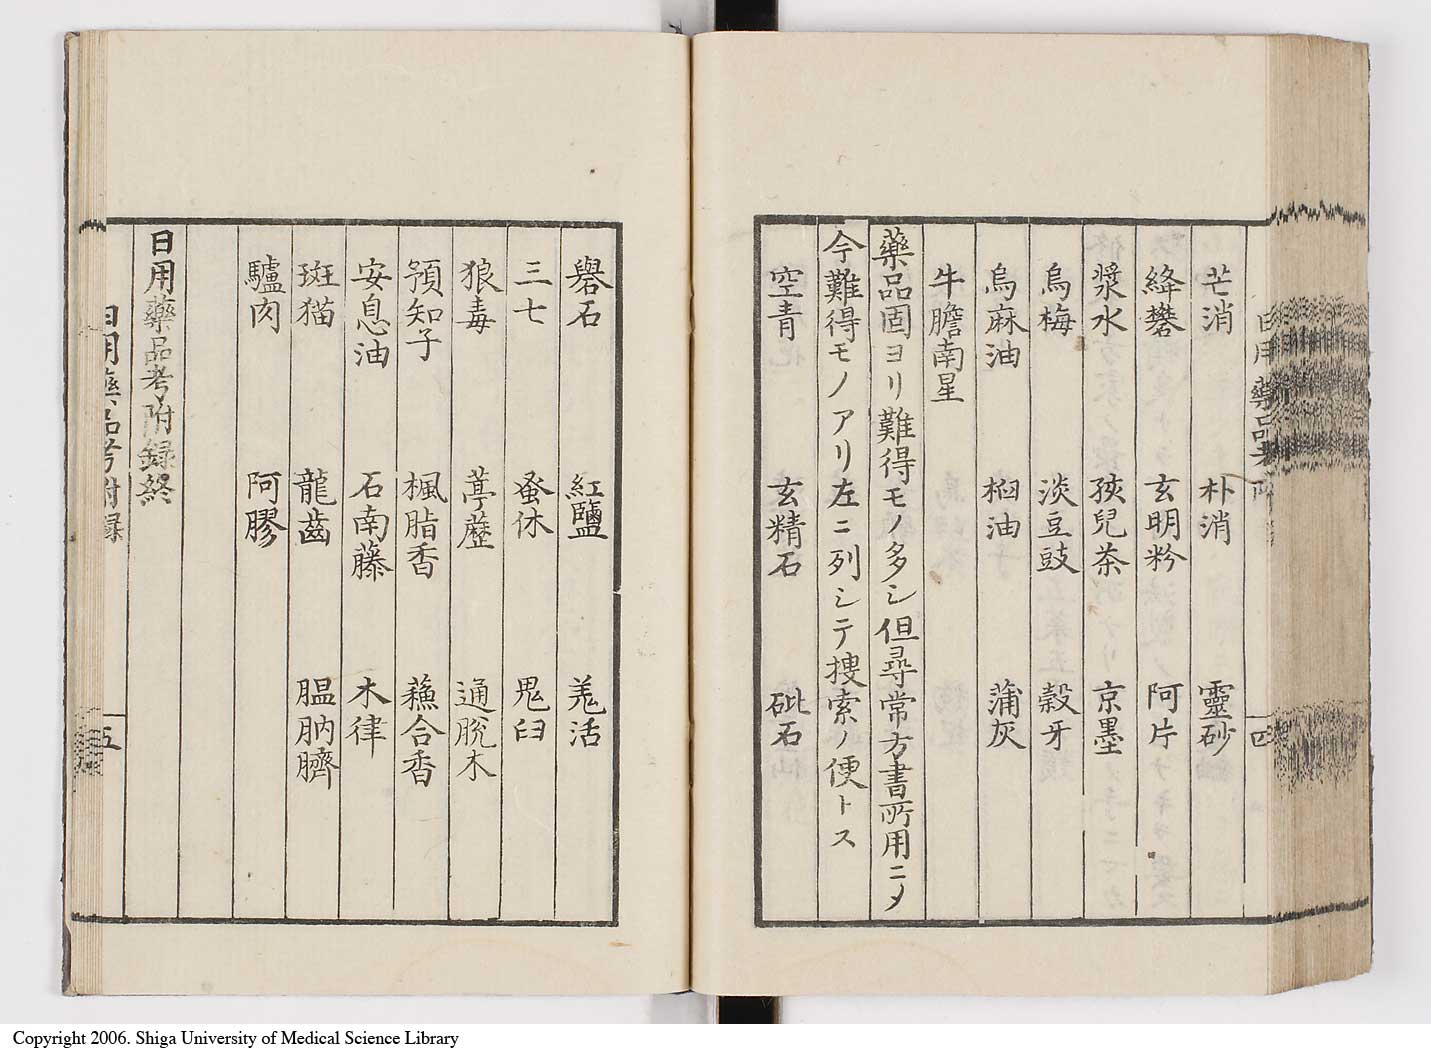 日用藥品考 附 四
芒消 朴消 靈砂
絳礬 玄明粉 阿片
漿水 孩兒茶 京墨
烏梅 淡豆豉 穀牙
烏麻油 桕油 蒲灰
牛膽南星
藥品固ヨリ難得モノ多シ但尋常方書所用ニメ
今難得モノアリ左ニ列シテ捜索ノ便トス
空青 玄精石 砒石
礜石 紅鹽 羗活
三七 蚤休 鬼臼
狼毒 葶藶 通脱木
預知子 楓脂香 蘓合香
安息油 石南藤 木律
斑猫 龍齒 膃肭臍
驢肉 阿膠
日用藥品考附録終
日用藥品考附録 五
Copyright 2006. Shiga University of Medical Science Library